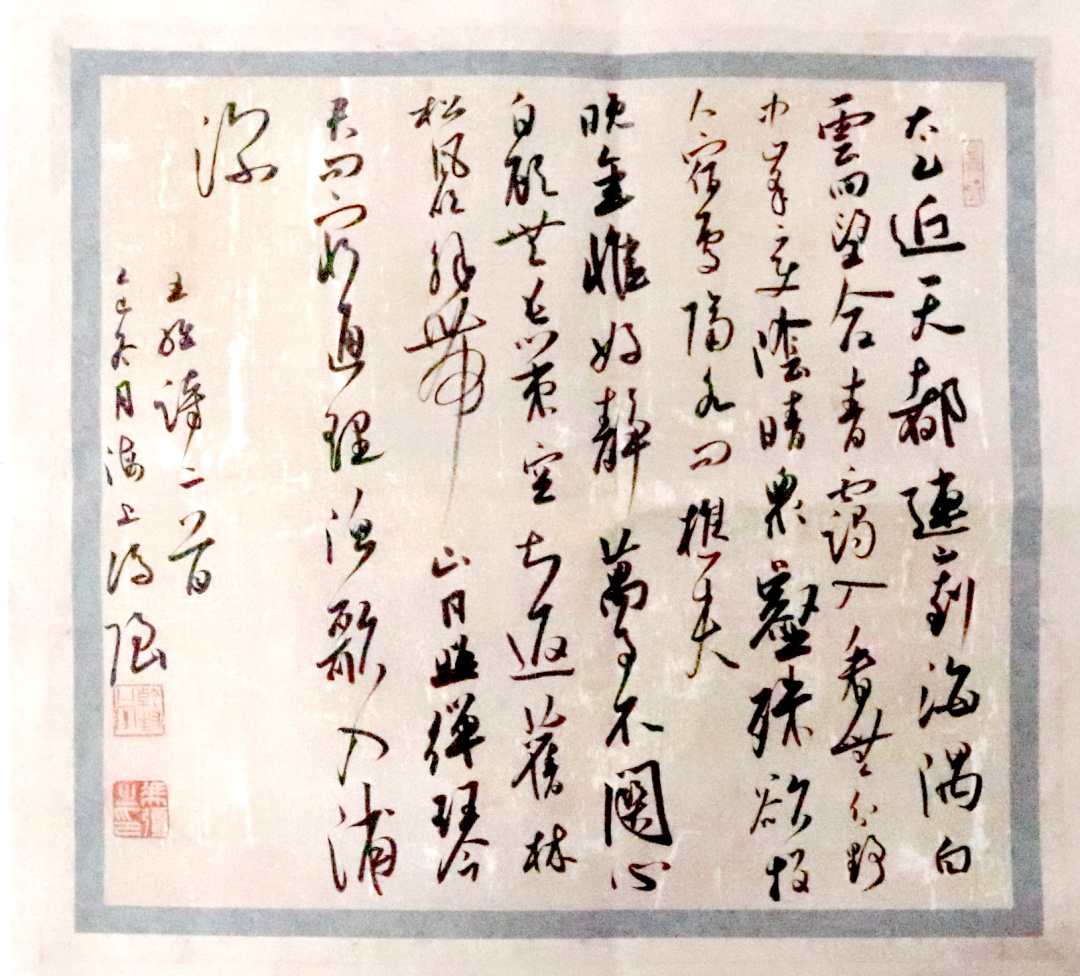 太乙近天都連山到海隅白
雲回望合青靄入看無分野
中峯變陰晴衆壑殊欲投
人宿處隔水問樵夫
晚年惟好靜萬事不關心
自顧無長策空知返舊林
松風吹解帶山月照彈琴
君問窮通理漁歌入浦
深
王維詩二首
冬月海上